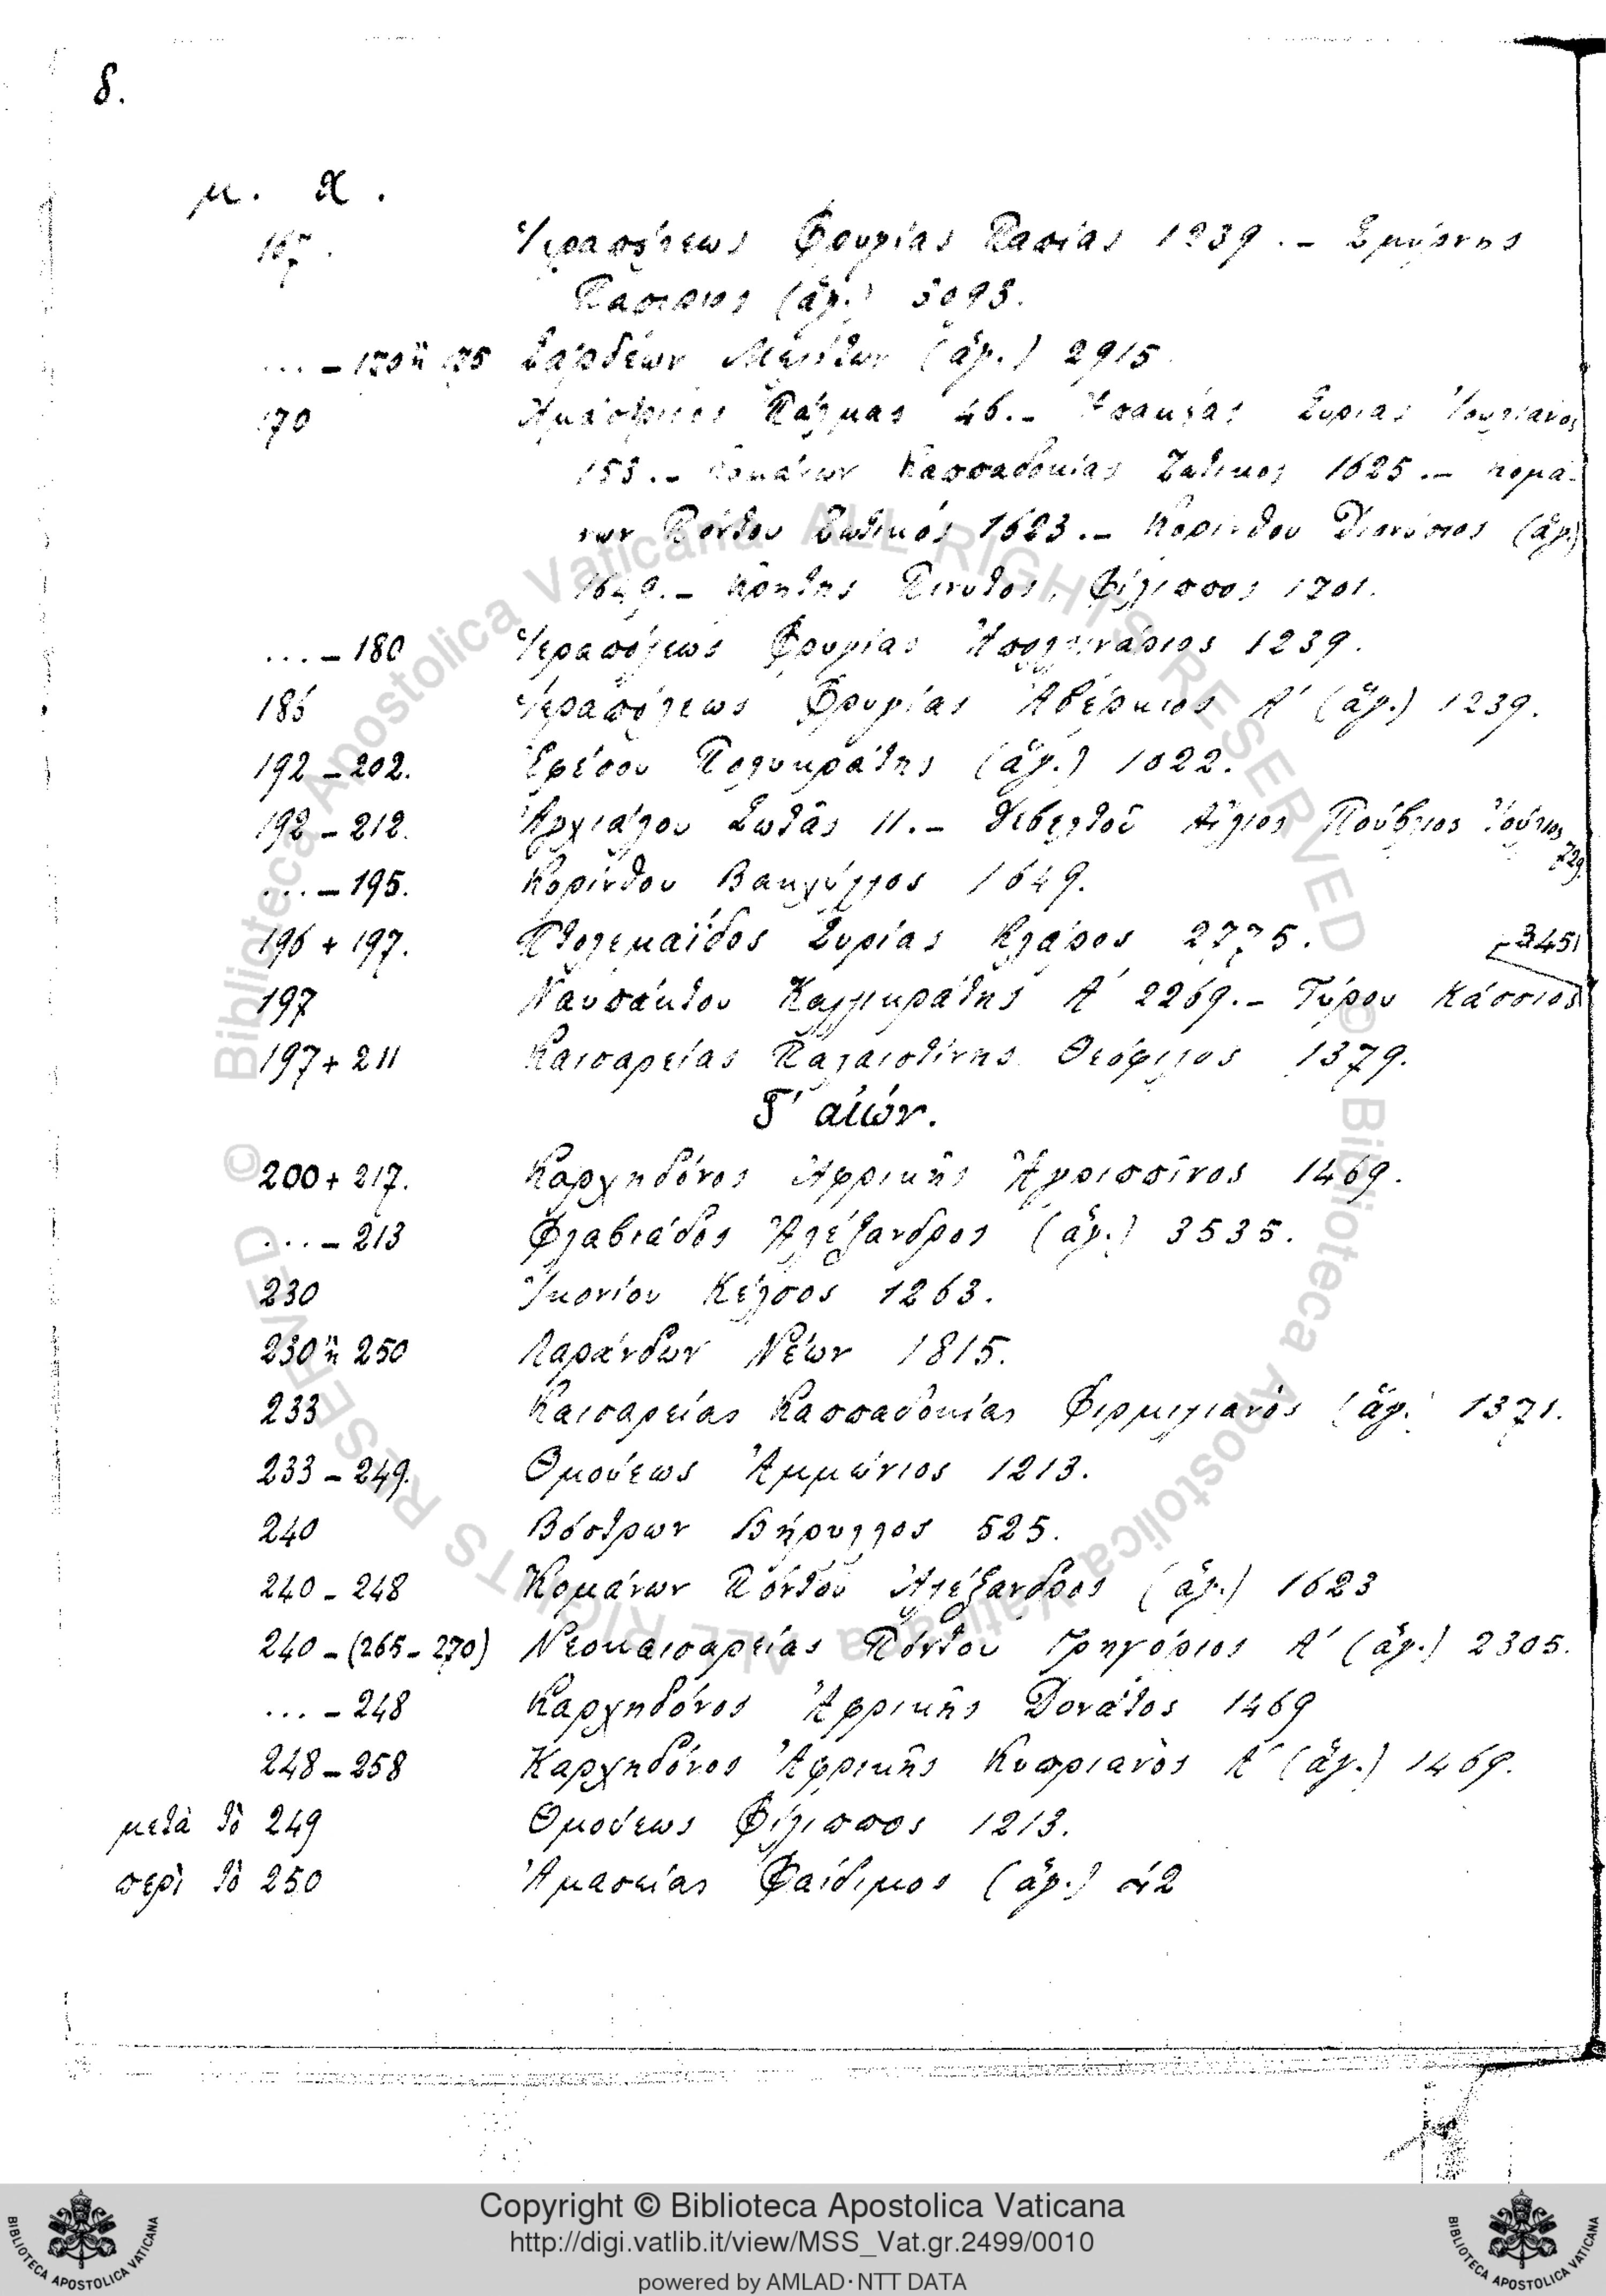 8.
μ. Χ.
167. Ἱεραπόλεως Φρυγίας Παπίας 1239. – Σμύρνης
(ἅγ.) 3093.
... – 170 ἢ 175 Σάρδεων Μελίτων (ἅγ.) 2915.
170 Ἀμάστριδος Πάλμας 46. – Συρίας
153. – Κομάνων Καππαδοκίας Ζωτικὸς 1625. – Κομά-
νων Πόντου Ζωτικός 1623. – Κορίνθου Διονύσιος (ἅγ.)
1649. – Κρήτης Πινυτός, Φίλιππος 1701.
... – 180 Ἱεραπόλεως Φρυγίας Ἀπολλινάριος 1239.
185 Ἱεραπόλεως Φρυγίας Ἀβέρκιος Α΄ (ἅγ.) 1239.
192 – 202. Ἐφέσου Πολυκράτης (ἅγ.) 1022.
192 – 212. Ἀγχιάλου Σωτᾶς 11. – Δεβελτοῦ Αἴλιος Πούβλιος Ἰούλιος
729.
... – 195. Κορίνθου Βακχύλλος 1649.
196 + 197. Πτολεμαΐδος Συρίας Κλάρος 2775.
3451
197 Ναυπάκτου Καλλικράτης Α΄ 2269. – Τύρου Κάσσιος
197 + 211 Καισαρείας Παλαιστίνης Θεόφιλος 1379.
Γ΄ αἰών.
200 + 217. Καρχηδόνος Ἀφρικῆς Ἀγριππῖνος 1469.
... – 213 Φλαβιάδος Ἀλέξανδρος (ἅγ.) 3535.
230 Ἰκονίου Κέλσος 1263.
230 ἢ 250 Λαράνδων Νέων 1815.
233 Καισαρείας Καππαδοκίας Φιρμιλιανὸς (ἅγ.) 1371.
233 – 249. Θμούεως Ἀμμώνιος 1213.
240 Βόστρων Βήρυλλος 525.
240 – 248 Κομάνων Πόντου Ἀλέξανδρος (ἅγ.) 1623
240 – (265 – 270) Νεοκαισαρείας Πόντου Γρηγόριος Α΄ (ἅγ.) 2305.
... – 248 Καρχηδόνος Ἀφρικῆς Δονάτος 1469
248 – 258 Καρχηδόνος Ἀφρικῆς Κυπριανὸς Α΄ (ἅγ.) 1469.
μετὰ τὸ 249 Θμούεως Φίλιππος 1213.
περὶ τὸ 250 Ἀμασείας Φαίδιμος (ἅγ.)
© Biblioteca Apostolica Vaticana ALL RIGHTS RESERVED
© Biblioteca Apostolica Vaticana ALL RIGHTS RESERVED
Copyright © Biblioteca Apostolica Vaticana
http://digi.vatlib.it/view/MSS_Vat.gr.2499/0010
powered by AMLAD·NTT DATA
BIBLIOTECA APOSTOLICA VATICANA
BIBLIOTECA APOSTOLICA VATICANA